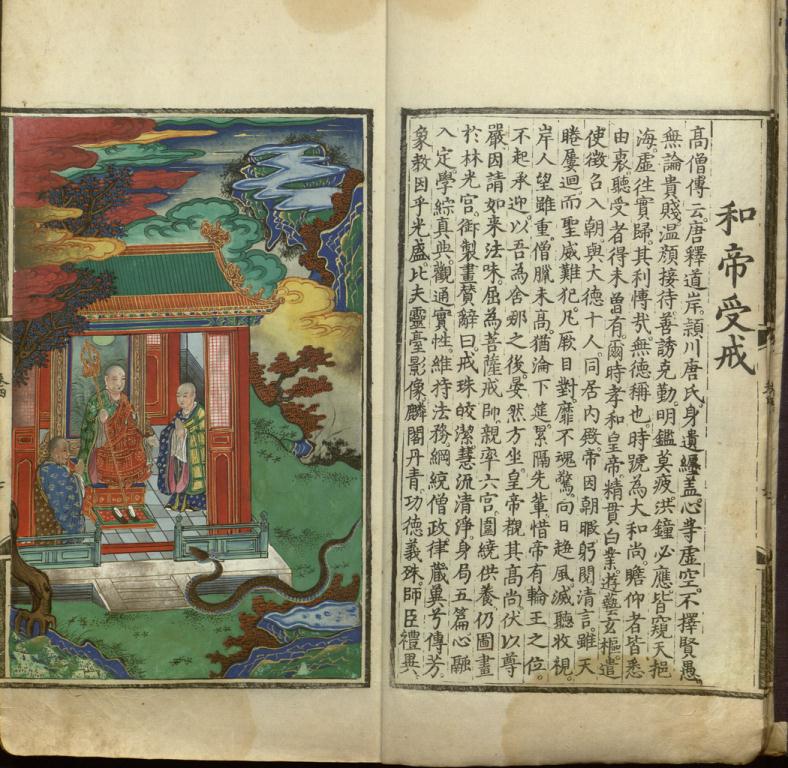 和帝受戒
高僧傳云。唐釋道岸。頴川唐氏。身遺纏盖。心等虛空。不擇賢愚。
無論貴賤。温顔接待。善誘克勤。明鑑莫疲。洪鐘必應。皆窺天挹
海。虛徃實歸。其利慱哉。無德稱也。時號為大和尚。瞻仰者皆悉
由衷。聽受者得未曾有。爾時孝和皇帝。精貫白業。遊藝玄樞。遣
使徵召入朝。與大德十人。同居內殿。帝因朝暇。躬閱清言。雖天
睠屢迴。而聖威難犯。凡厥目對。靡不魂驚。向日趍風。滅聽收視。
岸人望雖重。僧臘未高。猶淪下筵。累隔先輩。惜帝有輪王之位。
不起承迎。以吾為舍那之後。晏然方坐。皇帝觀其高尚。伏以尊
嚴。因請如来法味。屈為菩薩戒師。親率六宮。圍繞供養。仍圖畫
於林光宮。御製畫賛辭曰。戒珠皎潔。慧流清淨。身局五篇。心融
入定。學綜真典。觀通實性。維持法務。綱統僧政。律藏冀兮傳芳。
象教因乎光盛。比夫靈臺影像。麟閣丹青。功德義殊。師臣禮異。
卷四